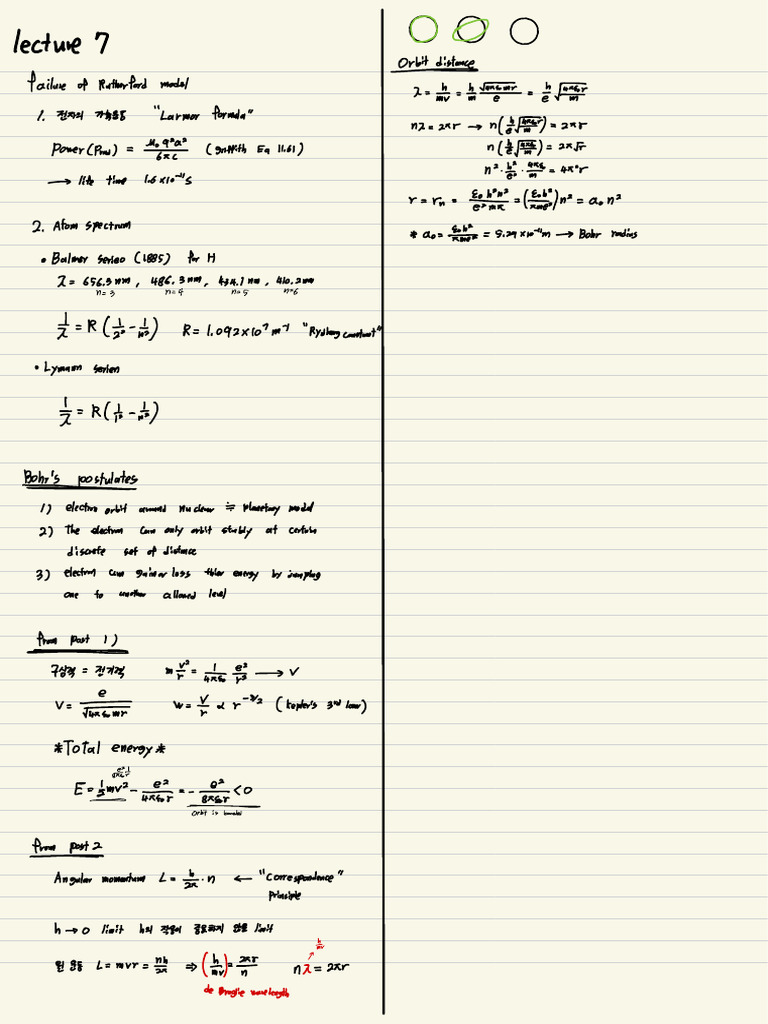 lecture 7
failure of Rutherford model
1. 전자의 가속운동 "Larmor formula"
Power (Prad) = μ₀q²a² / 6πc (Griffith Eq 11.61)
→ life time 1.6×10⁻¹¹s
2. Atom spectrum
• Balmer series (1885) for H
λ = 656.3 nm, 486.3 nm, 434.1 nm, 410.2 nm
n=3 n=4 n=5 n=6
1/λ = R(1/2² - 1/n²) R = 1.092×10⁷ m⁻¹ "Rydberg constant"
• Lyman series
1/λ = R(1/1² - 1/n²)
Bohr's postulates
1) electro orbit around nuclear ≒ planetary model
2) The electron can only orbit stably at certain
discrete set of distance
3) electron can gain or loss their energy by jumping
one to another allowed level
from post 1)
구심력 = 전기력 m v²/r = 1/4πε₀ e²/r² → v
V = e/√(4πε₀mr) w = v/r ∝ r^(-3/2) (Kepler's 3rd law)
*Total energy*
E = ½mv² - e²/4πε₀r = - e²/8πε₀r < 0
orbit is bounded
from post 2
Angular momentum L = h/2π · n ← "Correspondence"
Principle
h → 0 limit h의 작용이 중요하지 않은 limit
원 운동 L = mvr = nh/2π ⇒ (h/mv) = 2πr/n nλ = 2πr
h/mv
de Broglie wavelength
Orbit distance
λ = h/mv = h/m √(4πε₀mr)/e = h/e √(4πε₀r/m)
nλ = 2πr → n(h/e √(4πε₀r/m)) = 2πr
n(h/e √(4πε₀/m)) = 2π√r
n² · h²/e² · 4πε₀/m = 4π²r
r = rn = ε₀h²n²/e²mπ = (ε₀h²/πme²)n² = a₀n²
* a₀ = ε₀h²/πme² = 5.29×10⁻¹¹m → Bohr radius